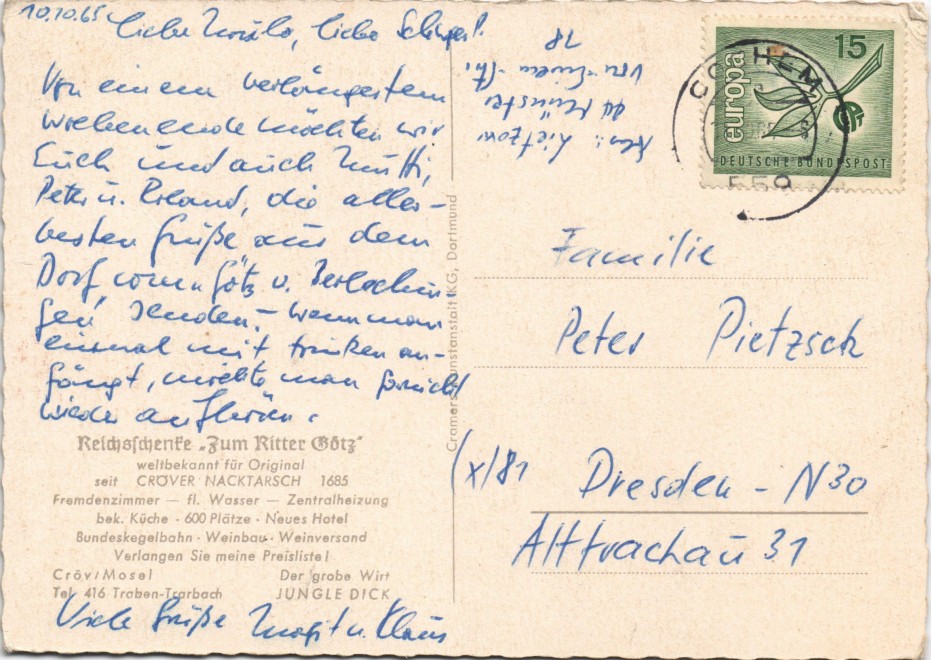 10.10.65
Liebe
Von einem verlängertem
Wochenende möchten wir
Euch und auch Mutti,
Peter u. Roland, die aller-
besten Grüße aus dem
Dorf vom Götz v. Berlichin-
gen senden. – Wenn man
einmal mit trinken an-
fängt, möchte man garnicht
wieder aufhören.
Reichsschenke „Zum Ritter Götz"
weltbekannt für Original
seit CRÖVER NACKTARSCH 1685
Fremdenzimmer — fl. Wasser — Zentralheizung
bek. Küche · 600 Plätze · Neues Hotel
Bundeskegelbahn · Weinbau · Weinversand
Verlangen Sie meine Preisliste!
Cröv/Mosel Der grobe Wirt
Tel. 416 Traben-Trarbach JUNGLE DICK
Viele Grüße Margit u. Klaus
Cramers Kunstanstalt KG, Dortmund
Abs.: Lietzow
44 Münster
18
europa 15
DEUTSCHE BUNDESPOST
COCHEM
559
Familie
Peter Pietzsch
(x/81 Dresden - N30
Alttrachau 31